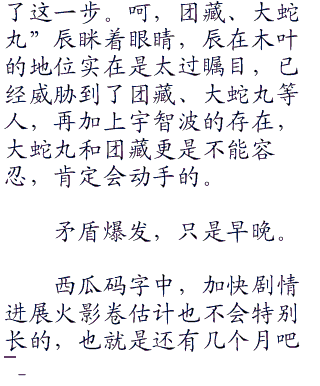 了这一步。呵，团藏、大蛇
丸”辰眯着眼睛，辰在木叶
的地位实在是太过瞩目，已
经威胁到了团藏、大蛇丸等
人，再加上宇智波的存在，
大蛇丸和团藏更是不能容
忍，肯定会动手的。
矛盾爆发，只是早晚。
西瓜码字中，加快剧情
进展火影卷估计也不会特别
长的，也就是还有几个月吧